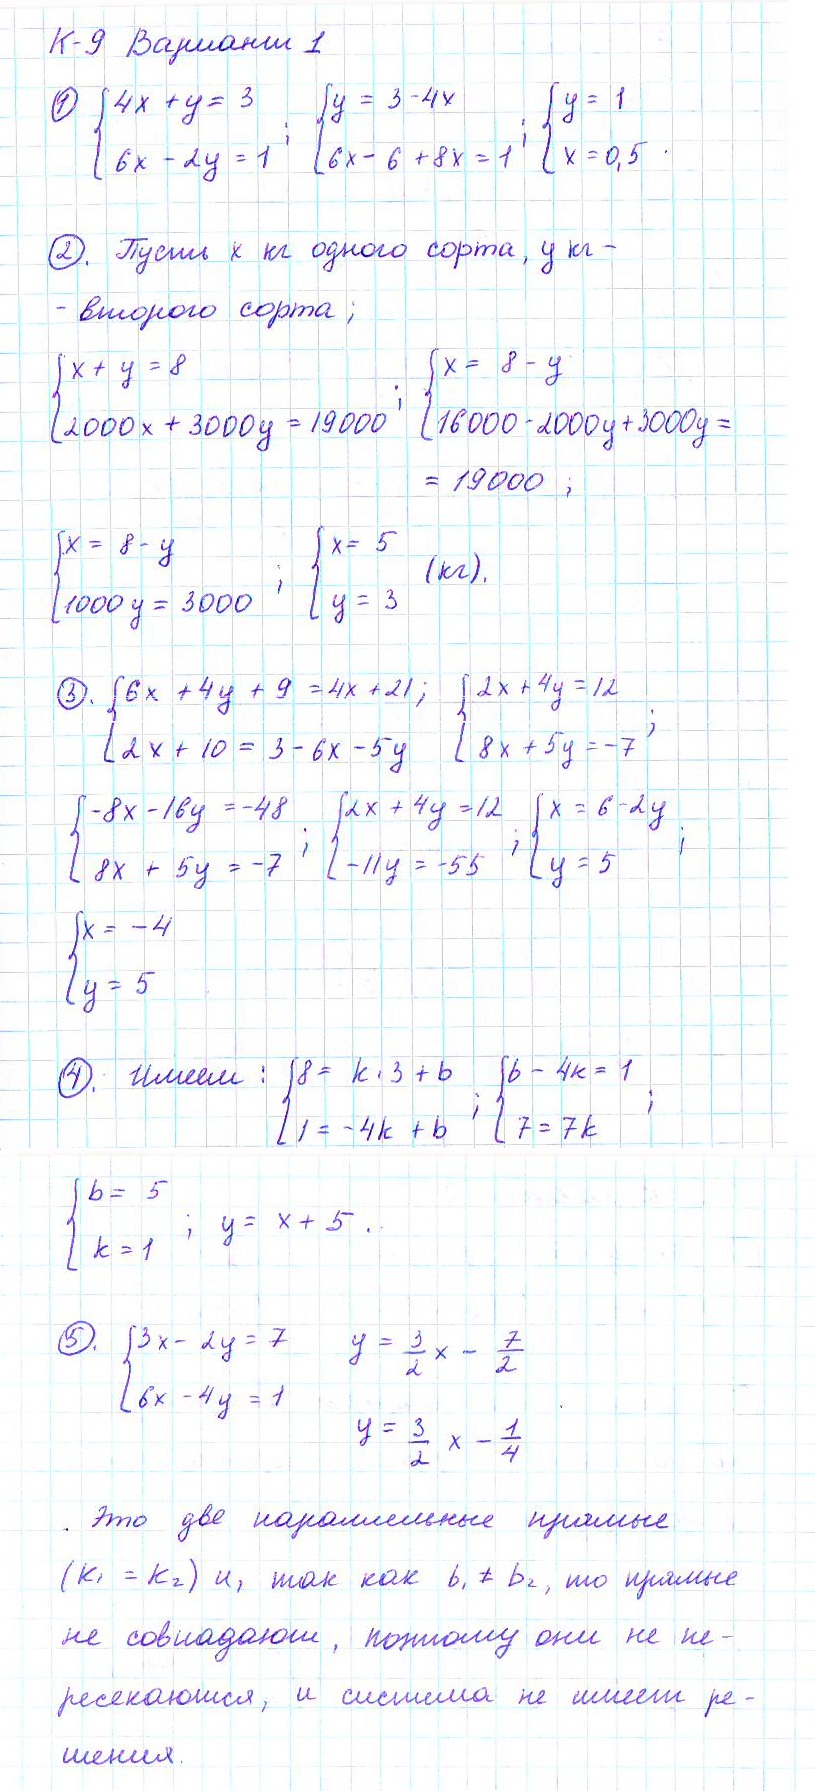 К-9 Вариант 1
① { 4x + y = 3 ; { y = 3 - 4x ; { y = 1
6x - 2y = 1 6x - 6 + 8x = 1 x = 0,5 .
②. Пусть x кг одного сорта, y кг -
- второго сорта;
{ x + y = 8 ; { x = 8 - y
2000x + 3000y = 19000 16000 - 2000y + 3000y =
= 19000 ;
{ x = 8 - y ; { x = 5 (кг).
1000y = 3000 y = 3
③. { 6x + 4y + 9 = 4x + 21; { 2x + 4y = 12 ;
2x + 10 = 3 - 6x - 5y 8x + 5y = -7
{ -8x - 16y = -48 ; { 2x + 4y = 12 ; { x = 6 - 2y ;
8x + 5y = -7 -11y = -55 y = 5
{ x = -4
y = 5
④. Имеем : { 8 = k · 3 + b ; { b - 4k = 1 ;
1 = -4k + b 7 = 7k
{ b = 5 ; y = x + 5 .
k = 1
⑤. { 3x - 2y = 7 y = 3/2 x - 7/2
6x - 4y = 1 y = 3/2 x - 1/4
. Это две параллельные прямые
(k₁ = k₂) и, так как b₁ ≠ b₂, то прямые
не совпадают, поэтому они не пе-
ресекаются, и система не имеет ре-
шения.